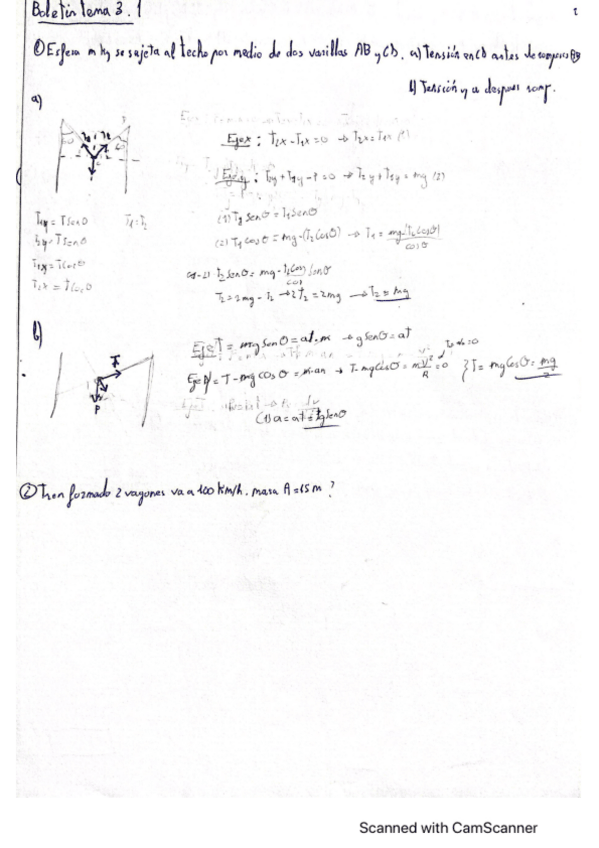 Boletín tema 3.1
① Esfera m kg se sujeta al techo por medio de dos varillas AB y CD. a) Tensión en CD antes de
b) Tensión y a despues romp.
a)
Eje x: T2x - T1x = 0 → T2x = T1x (1)
Eje y: T2y + T1y - P = 0 → T2y + T1y = mg (2)
T1y = T sen θ T1 = T2
T2y = T sen θ
T1x = T cos θ
T2x = T cos θ
(1) T2 sen θ = T1 sen θ
(2) T1 cos θ = mg - (T2 cos θ) → T1 = mg - T2 cos θ / cos θ
T2 = 2mg - T2 → 2T2 = 2mg → T2 = mg
b)
T
P
Eje T = mg sen θ = at · m → g sen θ = at
Eje N = T - mg cos θ = m · an → T - mg cos θ = m v²/R = 0 } T = mg cos θ = mg/2
(1) a = at = g sen θ
② Tren formado 2 vagones va a 100 km/h. masa A = 15 m ?
Scanned with CamScanner